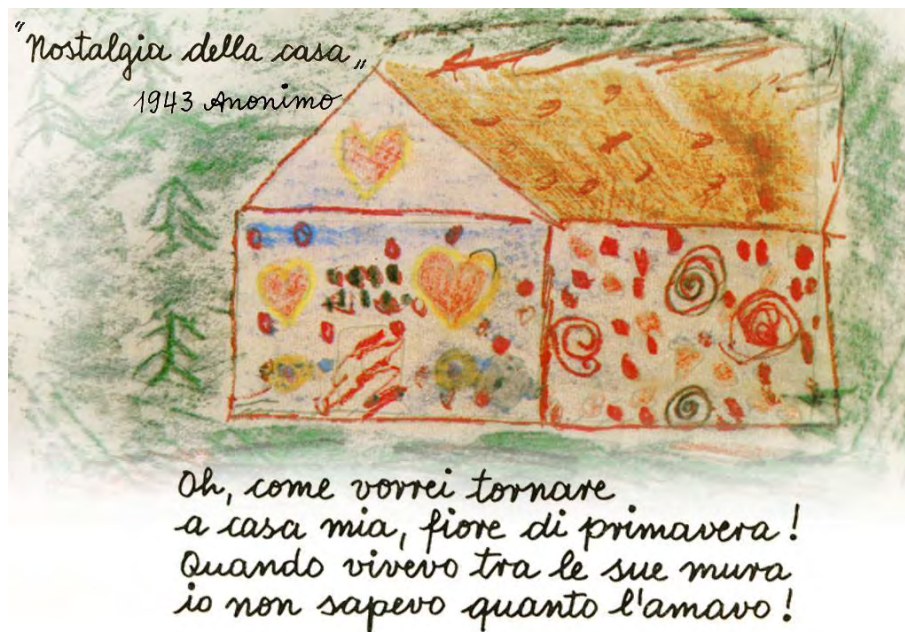 "Nostalgia della casa"
1943 Anonimo
Oh, come vorrei tornare
a casa mia, fiore di primavera!
Quando vivevo tra le sue mura
io non sapevo quanto l'amavo!